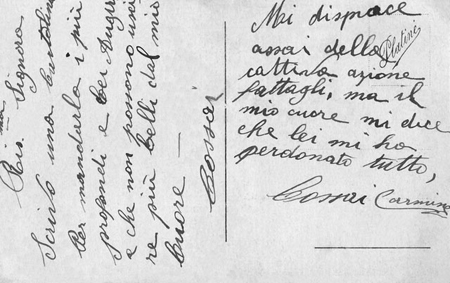 Gen.ma
Sig. Signora
Scrivo una cartolina
Per mandarla i più
profondi e bei Auguri
e che non possono usci
re più belli dal mio
Cuore —
Cossai
Mi dispiace
assai della
cattiva azione
fattagli, ma il
mio cuore mi dice
che lei mi ha
perdonato tutto,
Cossai Carmine